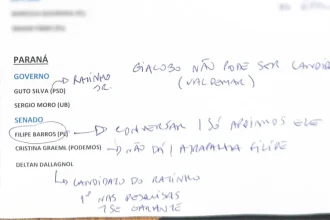 PARANÁ
GOVERNO
RATINHO
JR.
GIACOBO NÃO PODE SER CANDID
(VALDEMAR)
GUTO SILVA (PSD)
SERGIO MORO (UB)
SENADO
FILIPE BARROS (PL) CONVERSAR | SÓ APOIAMOS ELE
CRISTINA GRAEML (PODEMOS) NÃO DÁ | ATRAPALHA FILIPE
DELTAN DALLAGNOL
CANDIDATO DO RATINHO
1º NAS PESQUISAS
SE GARANTE